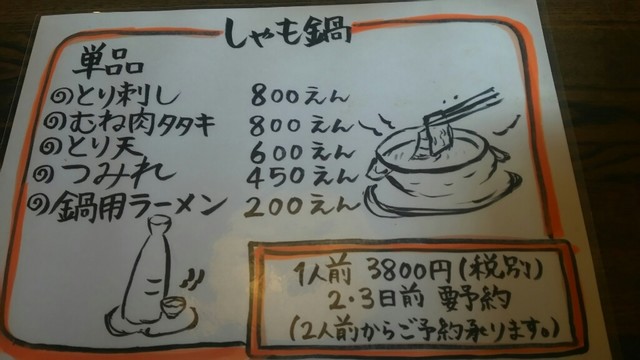 しゃも鍋
単品
のとり刺し 800えん
のむね肉タタキ 800えん
のとり天 600えん
のつみれ 450えん
の鍋用ラーメン 200えん
1人前 3800円(税別)
2・3日前 要予約
(2人前からご予約承ります。)